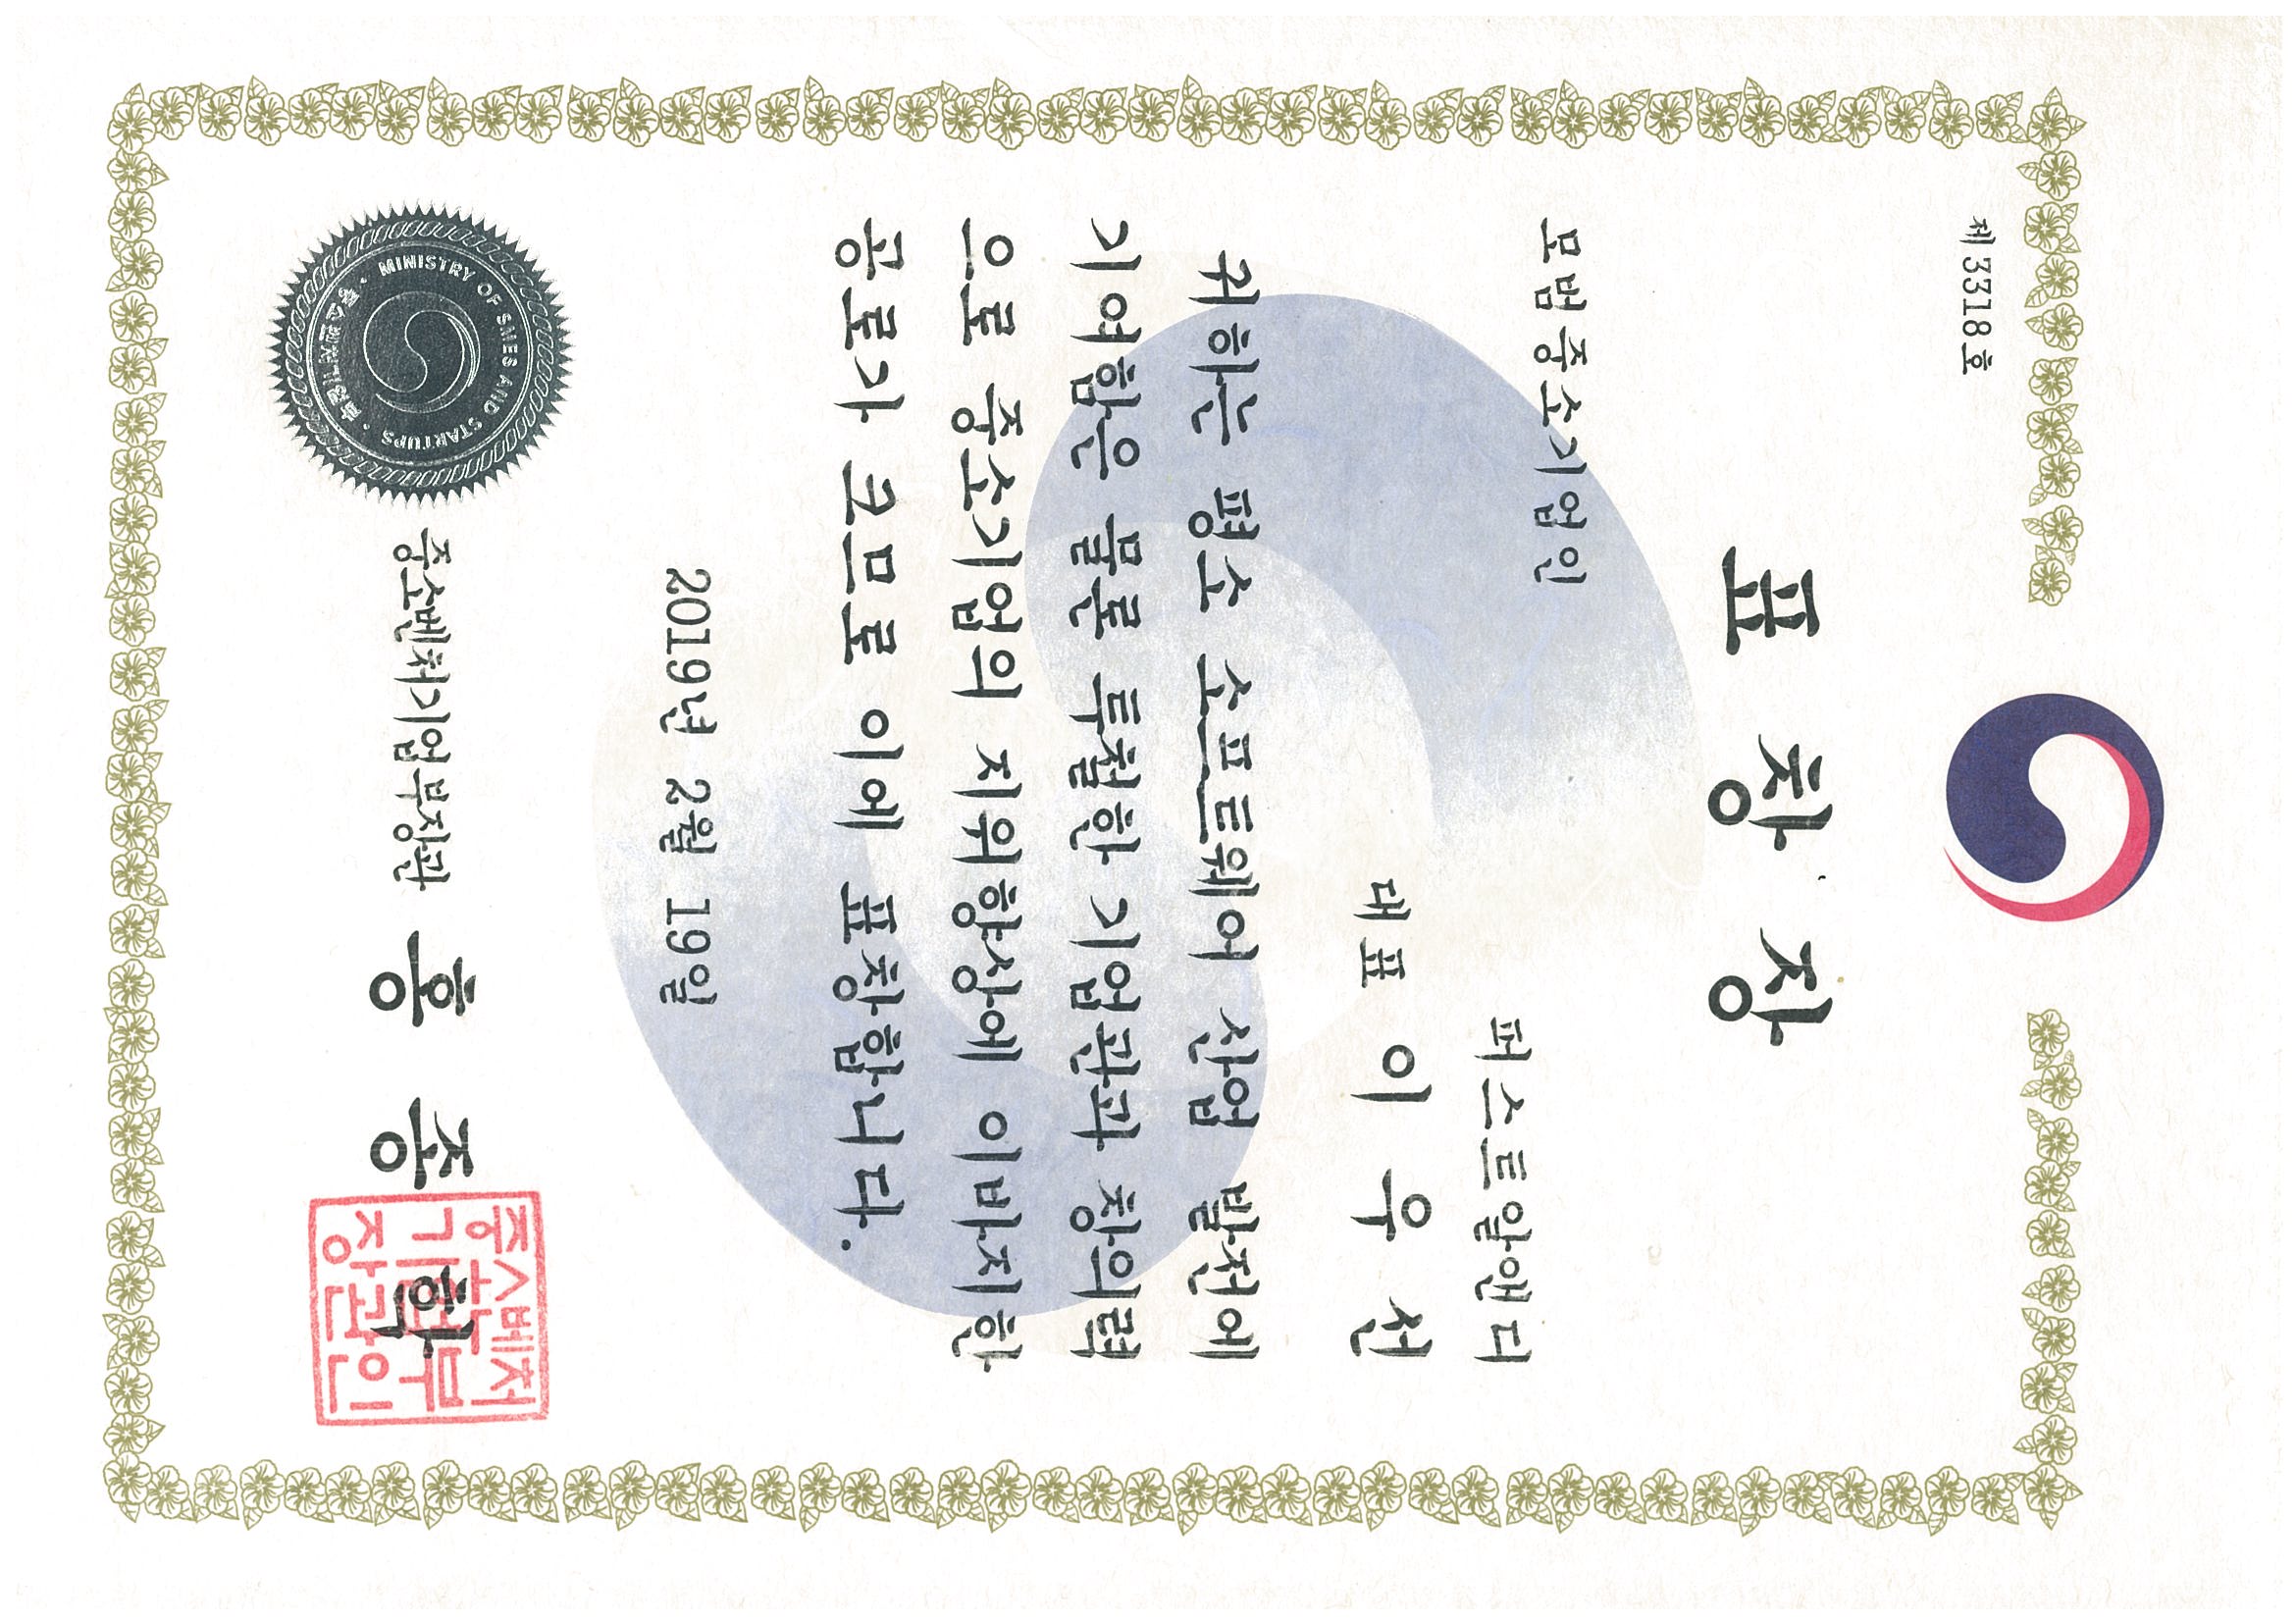 제3318호
표창장
모범중소기업인
퍼스트알앤디
대표 이우선
귀하는 평소 소프트웨어 산업 발전에
기여함은 물론 투철한 기업관과 창의력
으로 중소기업의 지위향상에 이바지한
공로가 크므로 이에 표창합니다.
2019년 2월 19일
중소벤처기업부장관 홍종학
MINISTRY OF SMES AND STARTUPS
중소벤처기업부장관인